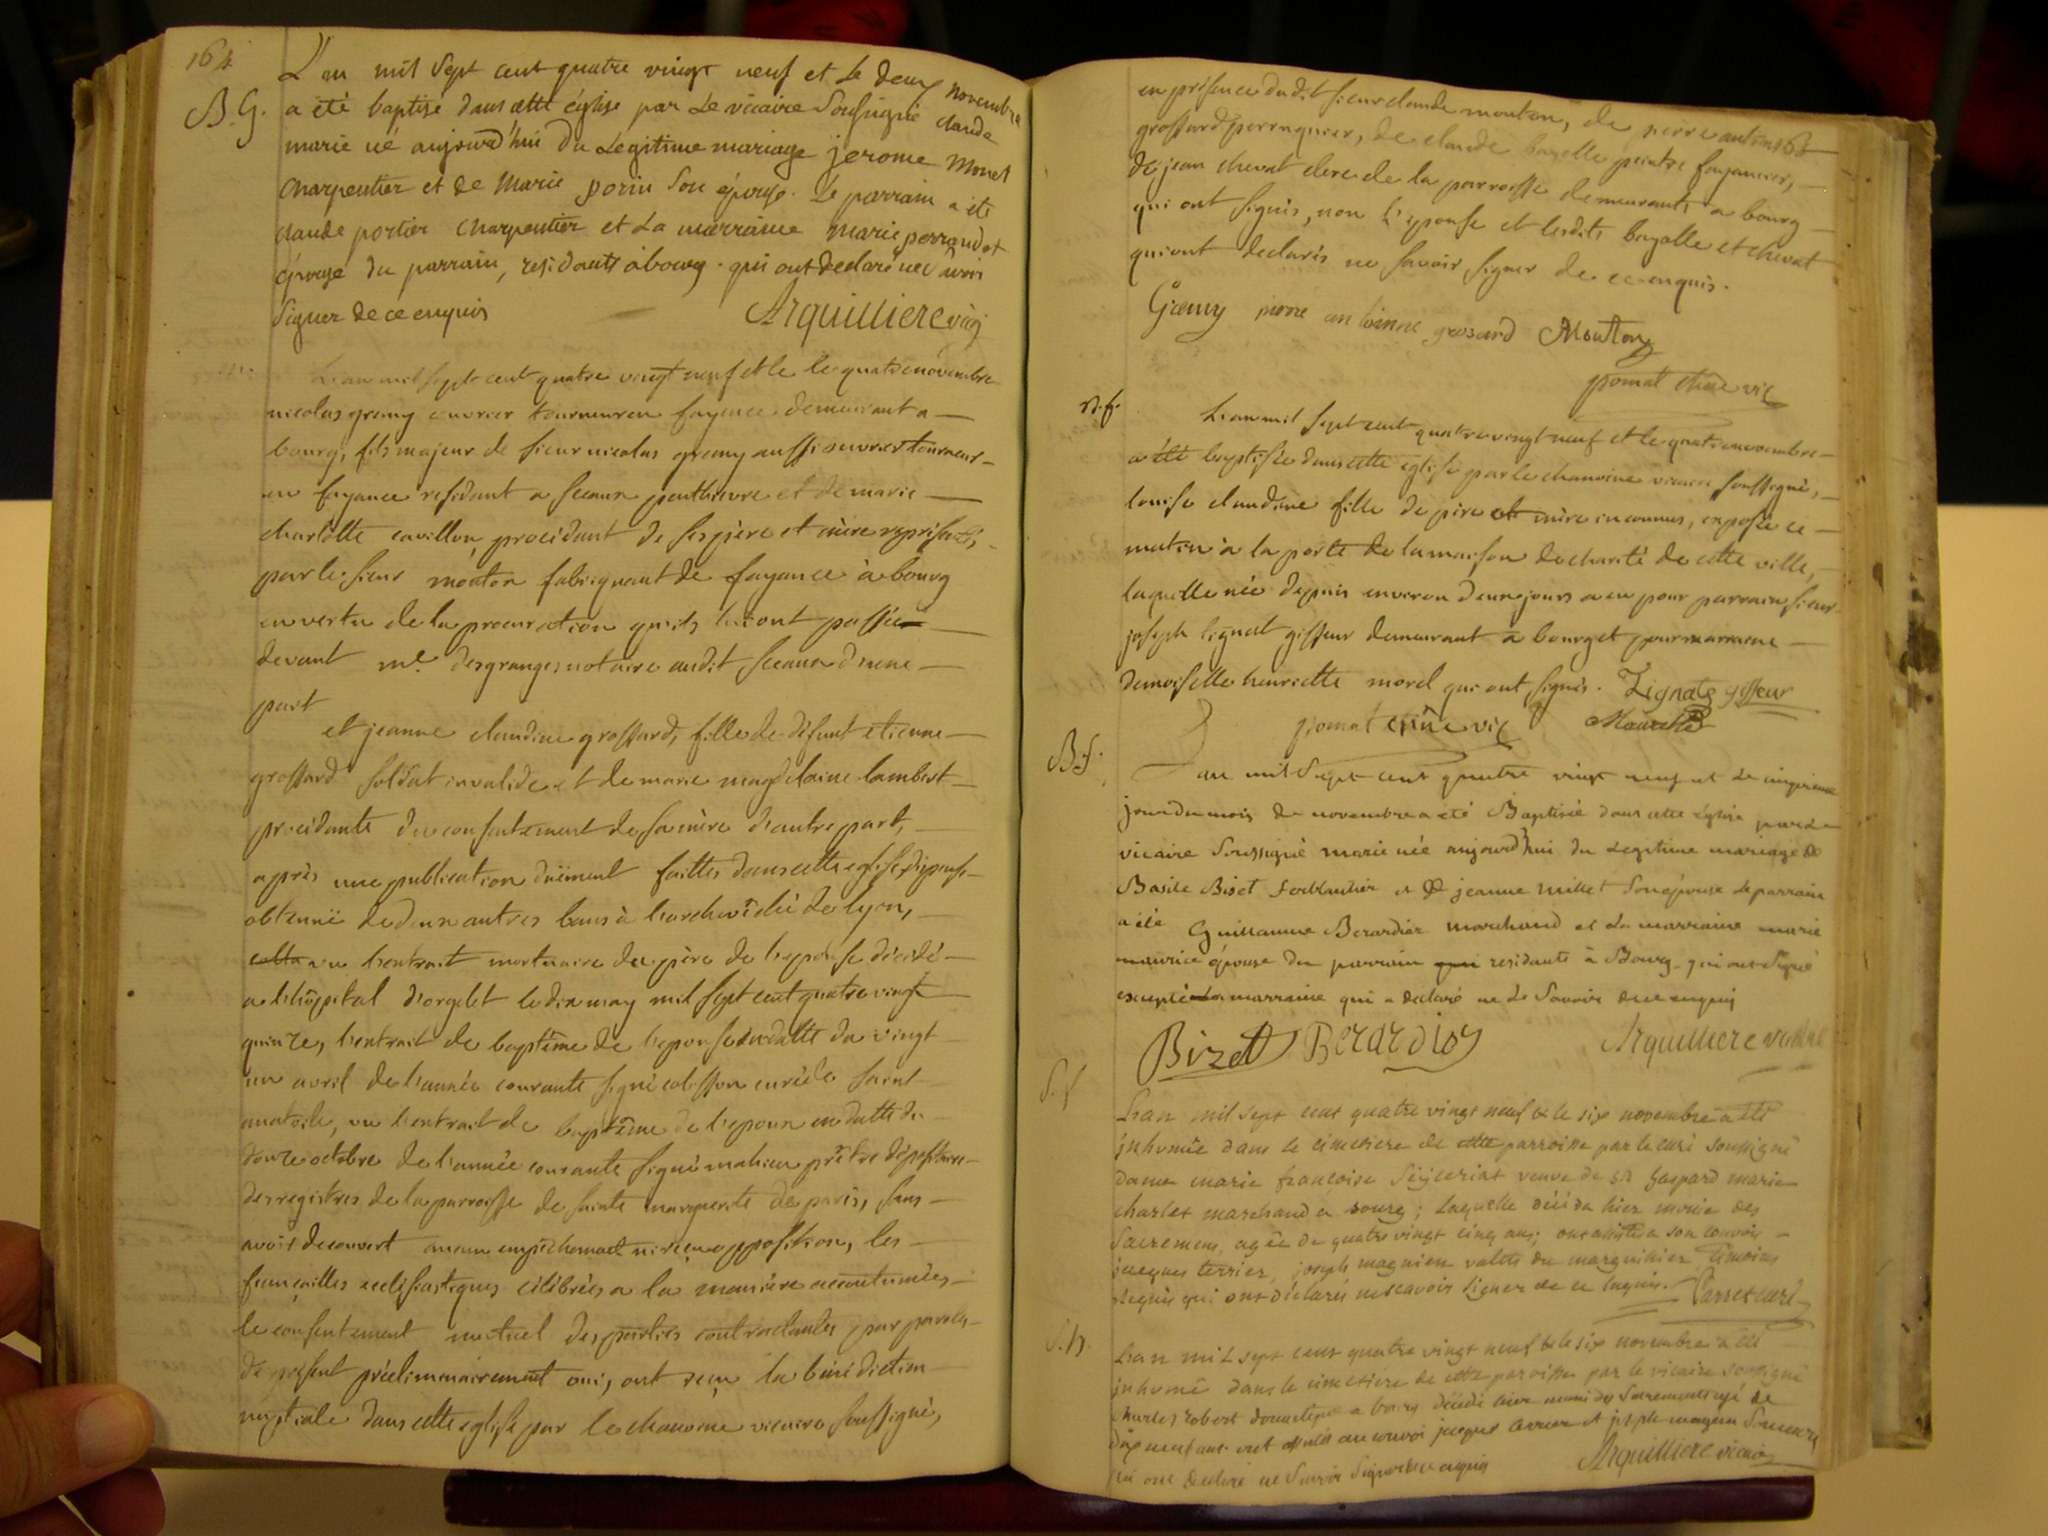 164
B.G.
L'an mil sept cent quatre vingt neuf et le deux novembre
a été baptisé dans cette église par le vicaire soussigné claude
marie né aujourd'hui du légitime mariage jerome Monet
charpentier et de Marie porin son épouse. Le parrain a été
claude portier charpentier et la marraine marie perraudet
épouse du parrain, residants à bourg. qui ont declaré ne savoir
signer de ce enquis
Arquilliere vic
m.
L'an mil sept cent quatre vingt neuf et le le quatre novembre
nicolas gremy ouvrier tourneur en fayance demeurant a
bourg, fils majeur de sieur nicolas gremy aussi ouvrier tourneur
en fayance residant a sceaux penthievre et de marie
charlotte cavillon, procédant de ses père et mère représentés
par le sieur mouton fabriquant de fayance à bourg
en vertu de la procuration qu'ils lui ont passée
devant me. desgranges notaire audit sceaux d'une
part
et jeanne claudine grossard, fille de défunt etienne
grossard soldat invalide et de marie magdelaine lambert
procédante du consentement de sa mère d'autre part,
après une publication düement faittes dans cette eglise, dispense
obtenuë de deux autres bans à l'archevêché de lyon,
vu l'extrait mortuaire du père de l'epouse décédé
a l'hôpital d'orgelet le dix may mil sept cent quatre vingt
quinze, l'extrait de baptême de l'epouse en datte du vingt
un avril de l'année courante signé colisson curé de saint
anatoile, vu l'extrait de baptême de l'epoux en datte du
douze octobre de l'année courante signé mahieu prêtre dépositaire
des registres de la parroisse de sainte marguerite de paris, sans
avoir decouvert aucun empêchement ni reçu opposition, les
fiançailles ecclésiastiques célébrées a la manière accoutumées
le consentement mutuel des parties contractantes par paroles
de présent préliminairement oui, ont reçu la bénédiction
nuptiale dans cette eglise par le chanoine vicaire soussigné,
en présence dudit sieur claude mouton, de pierre antoine
grossard perruquier, de claude bazelle peintre fayancier,
de jean chevat clerc de la parroisse demeurants a bourg
qui ont signés, non l'epouse et lesdits bazalle et chevat
qui ont declarés ne savoir signer de ce enquis.
Gremy pierre antoinne grosard Mouton
pomat chne vic
B.f.
L'an mil sept cent quatre vingt neuf et le quatre novembre
a été baptisée dans cette eglise par le chanoine vicaire soussigné,
louise claudine fille de père et mère inconnus, exposée ce
matin à la porte de la maison de charité de cette ville,
laquelle née depuis environ deux jours a eu pour parrain sieur
joseph lignat gisseur demeurant a bourg et pour marraine
demoiselle henriette morel qui ont signés. Lignat gisseur
pomat chne vic
B.f.
L'an mil sept cent quatre vingt neuf et le cinquieme
jour du mois de novembre a été Baptisée dans cette église par le
vicaire soussigné marie née aujourd'hui du legitime mariage de
Basile Biset ferblantier et de jeanne millet son épouse le parrain
a été Guillaume Berardier marchand et la marraine marie
maurice épouse du parrain residants à Bourg qui ont signé
excepté la marraine qui a declaré ne le savoir de ce enquis
Bizet Berardier Arquilliere vicaire
S.f
L'an mil sept cent quatre vingt neuf & le six novembre a été
inhumée dans le cimetiere de cette parroisse par le curé soussigné
dame marie françoise veuve de sr gaspard marie
charles marchand a bourg; laquelle décéda hier munie des
sacremens, agée de quatre vingt cinq ans; ont assisté a son convoi
jacques terrier, joseph magnien valets du marguillier, témoins
requis qui ont déclarés ne scavoir signer de ce enquis. curé
S.h.
L'an mil sept cent quatre vingt neuf & le six novembre a été
inhumé dans le cimetiere de cette paroisse par le vicaire soussigné
charles robert domestique a bourg décédé hier muni des sacrements agé de
dix neuf ans. ont assisté au convoi jacques terrier et joseph magnien
qui ont declaré ne savoir signer de ce enquis Arquilliere vicaire